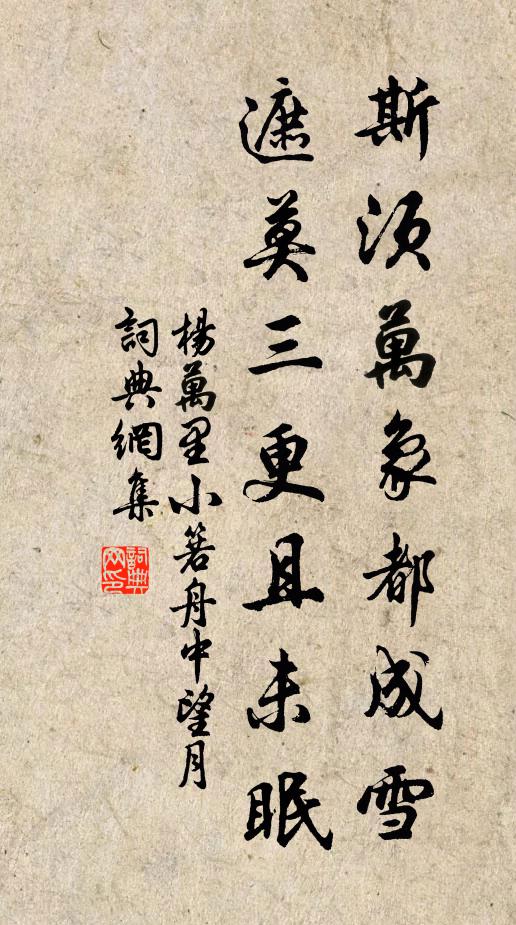 斯須萬象都成雪
遮莫三更且未眠
楊萬里小箬舟中望月
詞典網集
詞典網印